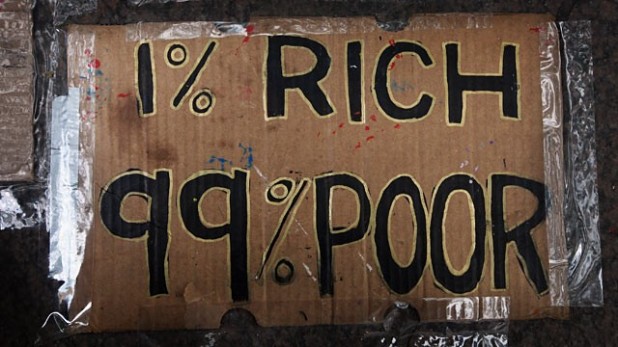 1% RICH
99% POOR